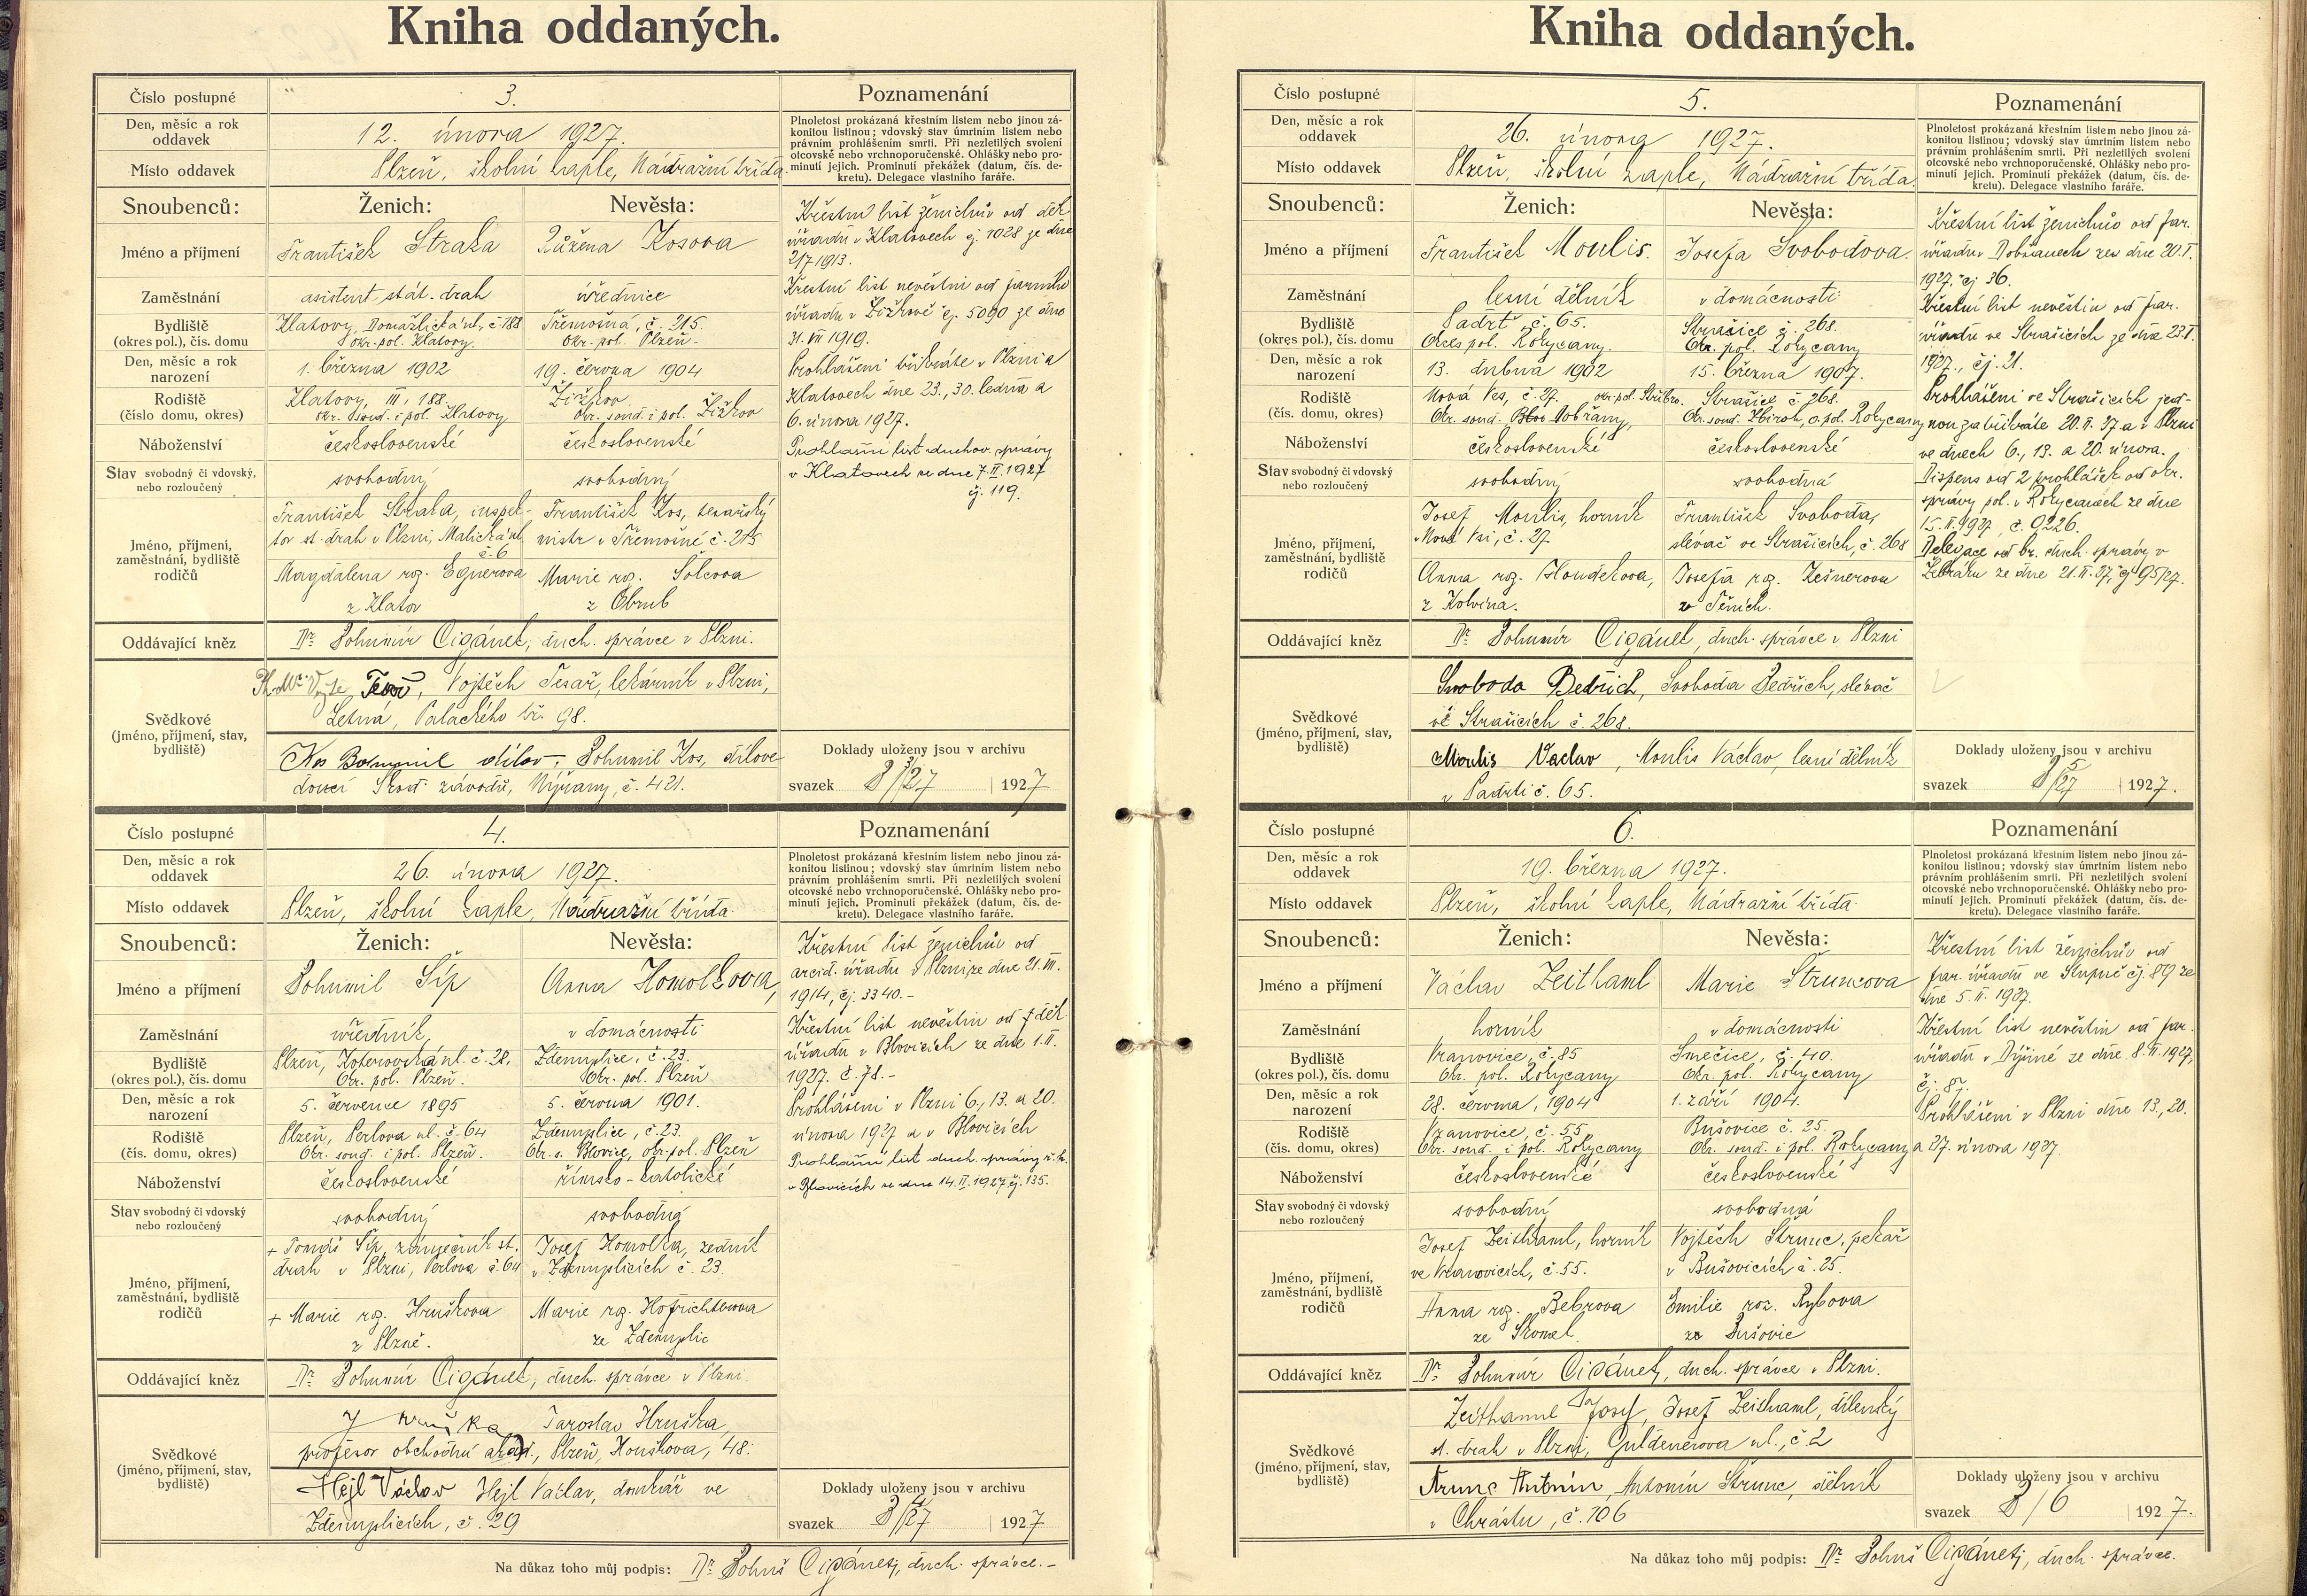 Kniha oddaných.
Číslo postupné
3.
Poznamenání
Den, měsíc a rok
oddavek
12. února 1927.
Plnoletost prokázaná křestním listem nebo jinou zá-
konitou listinou; vdovský stav úmrtním listem nebo
právním prohlášením smrti. Při nezletilých svolení
otcovské nebo vrchnoporučenské. Ohlášky nebo pro-
minutí jejich. Prominutí překážek (datum, čís. de-
kretu). Delegace vlastního faráře.
Místo oddavek
Plzeň, školní kaple, Nádražní třída.
Snoubenců:
Ženich:
Nevěsta:
Jméno a příjmení
František Straka
Růžena Kosova
Zaměstnání
asistent stát. drah
úřednice
Bydliště
(okres pol.), čís. domu
Klatovy, Domažlická ul. č. 188
okr. pol. Klatovy.
Třemošná, č. 215.
okr. pol. Plzeň.
Den, měsíc a rok
narození
1. března 1902
19. června 1904
Rodiště
(číslo domu, okres)
Klatovy, III, 188.
okr. soud. i pol. Klatovy
Žižkov
okr. soud. i pol. Žižkov
Náboženství
československé
československé
Stav svobodný či vdovský,
nebo rozloučený
svobodný
svobodný
Jméno, příjmení,
zaměstnání, bydliště
rodičů
František Straka, inspek-
tor st. drah v Plzni, Malická ul.
č. 6
Magdalena roz. Egnerova
z Klatov
František Kos,
mistr v Třemošné č. 215
Marie roz. Šolcova
z Obrub
Křestní list ženichův od děk.
úřadu v Klatovech čj. 1028 ze dne
21/7 1913.
Křestní list nevěstin od farního
úřadu v Žižkově čj. 5090 ze dne
31. VII 1919.
Prohlášeni byli v Plzni a
Klatovech dne 23., 30. ledna a
6. února 1927.
Prohlašní list duchov. správy
v Klatovech ze dne 7. II. 1927
čj. 119.
Oddávající kněz
Dr. Bohumír Cigánek, duch. správce v Plzni.
Svědkové
(jméno, příjmení, stav,
bydliště)
Tesař, Vojtěch Tesař, lékárník v Plzni,
Letná, Palackého tř. 98.
Kos Bohumil dílov., Bohumil Kos, dílove-
doucí Škod. závodů, Nýřany, č. 421.
Doklady uloženy jsou v archivu
svazek 3/27 1927
Číslo postupné
4.
Poznamenání
Den, měsíc a rok
oddavek
26. února 1927.
Plnoletost prokázaná křestním listem nebo jinou zá-
konitou listinou; vdovský stav úmrtním listem nebo
právním prohlášením smrti. Při nezletilých svolení
otcovské nebo vrchnoporučenské. Ohlášky nebo pro-
minutí jejich. Prominutí překážek (datum, čís. de-
kretu). Delegace vlastního faráře.
Místo oddavek
Plzeň, školní kaple, Nádražní třída.
Snoubenců:
Ženich:
Nevěsta:
Jméno a příjmení
Bohumil Šíp
Anna Homolkova,
Zaměstnání
úředník,
v domácnosti
Bydliště
(okres pol.), čís. domu
Plzeň, Koterovská ul. č. 28,
Okr. pol. Plzeň.
Zdemyslice, č. 23.
Okr. pol. Plzeň
Den, měsíc a rok
narození
5. července 1895
5. června 1901.
Rodiště
(čís. domu, okres)
Plzeň, Perlova ul. č. 64
Okr. soud. i pol. Plzeň.
Zdemyslice, č. 23.
Okr. s. Blovice, okr. pol. Plzeň
Náboženství
československé
římsko-katolické
Stav svobodný či vdovský
nebo rozloučený
svobodný
svobodná
Jméno, příjmení,
zaměstnání, bydliště
rodičů
+ Tomáš Šíp, zámečník st.
drah v Plzni, Perlova č. 64
+ Marie roz. Hruškova
z Plzně.
Josef Homolka, zedník
v Zdemyslicích č. 23
Marie roz. Hofrichterova
ze Zdemyslic
Křestní list ženichův od
arcid. úřadu v Plzni ze dne 21. VII.
1914, čj. 3340.-
Křestní list nevěstin od děk.
úřadu v Blovicích ze dne 1. II.
1927. č. 78.-
Prohlášeni v Plzni 6., 13. a 20.
února 1927 a v Blovicích
Prohlašní list duch. správy ř.k.
v Blovicích ze dne 14. II. 1927 čj. 135.
Oddávající kněz
Dr. Bohumír Cigánek, duch. správce v Plzni.
Svědkové
(jméno, příjmení, stav,
bydliště)
J Hruška Jaroslav Hruška,
profesor obchodní akad., Plzeň, Houškova, 48.
Hejl Václav Hejl Václav, domkář ve
Zdemyslicích, č. 29
Doklady uloženy jsou v archivu
svazek 4/27 1927
Na důkaz toho můj podpis: Dr. Bohuš Cigánek, duch. správce.-
Kniha oddaných.
Číslo postupné
5.
Poznamenání
Den, měsíc a rok
oddavek
26. února 1927.
Plnoletost prokázaná křestním listem nebo jinou zá-
konitou listinou; vdovský stav úmrtním listem nebo
právním prohlášením smrti. Při nezletilých svolení
otcovské nebo vrchnoporučenské. Ohlášky nebo pro-
minutí jejich. Prominutí překážek (datum, čís. de-
kretu). Delegace vlastního faráře.
Místo oddavek
Plzeň, školní kaple, Nádražní třída.
Snoubenců:
Ženich:
Nevěsta:
Jméno a příjmení
František Moulis.
Josefa Svobodova.
Zaměstnání
lesní dělník
v domácnosti
Bydliště
(okres pol.), čís. domu
Padrť č. 65.
Okres pol. Rokycany.
Strašice č. 268.
Okr. pol. Rokycany
Den, měsíc a rok
narození
13. dubna 1902
15. března 1907.
Rodiště
(čís. domu, okres)
Nová Ves, č. 27. okr. pol. Stříbro.
Okr. soud. Dobřany,
Strašice č. 268.
Okr. soud. Zbiroh, o. pol. Rokycany
Náboženství
československé
československé
Stav svobodný či vdovský
nebo rozloučený
svobodný
svobodná
Jméno, příjmení,
zaměstnání, bydliště
rodičů
Josef Moulis, horník
v Nové Vsi, č. 27.
Anna roz. Houdkova,
z Kolvína.
František Svoboda,
slévač ve Strašicích, č. 268
Josefa roz. Kešnerova
z Těních.
Křestní list ženichův od far.
úřadu v Dobřanech ze dne 20. I.
1927. čj. 36.
Křestní list nevěstin od far.
úřadu ve Strašicích ze dne 23. I.
1927., čj. 21.
Prohlášeni ve Strašicích jed-
nou 20. II. 27. a v Plzni
ve dnech 6., 13. a 20. února.
Dispens od 2 prohlášek od okr.
správy pol. v Rokycanech ze dne
15. II. 1927. č. 9226.
Delegace od br. duch. správy v
Žebráku ze dne 21. II. 27, čj. 95/27.
Oddávající kněz
Dr. Bohumír Cigánek, duch. správce v Plzni
Svědkové
(jméno, příjmení, stav,
bydliště)
Svoboda Bedřich, Svoboda Bedřich, slévač
ve Strašicích č. 268.
Moulis Vaclav, Moulis Václav, lesní dělník
v Padrti č. 65.
Doklady uloženy jsou v archivu
svazek 5/27 1927.
Číslo postupné
6.
Poznamenání
Den, měsíc a rok
oddavek
19. března 1927.
Plnoletost prokázaná křestním listem nebo jinou zá-
konitou listinou; vdovský stav úmrtním listem nebo
právním prohlášením smrti. Při nezletilých svolení
otcovské nebo vrchnoporučenské. Ohlášky nebo pro-
minutí jejich. Prominutí překážek (datum, čís. de-
kretu). Delegace vlastního faráře.
Místo oddavek
Plzeň, školní kaple, Nádražní třída.
Snoubenců:
Ženich:
Nevěsta:
Jméno a příjmení
Václav Zeithaml
Marie Štruncova
Zaměstnání
horník
v domácnosti
Bydliště
(okres pol.), čís. domu
Vranovice, č. 85
Okr. pol. Rokycany
Smečice, č. 40.
Okr. pol. Rokycany
Den, měsíc a rok
narození
28. června, 1904
1. září 1904.
Rodiště
(čís. domu, okres)
Vranovice, č. 55
Okr. soud. i pol. Rokycany
Bušovice č. 25.
Okr. soud. i pol. Rokycany
Náboženství
československé
československé
Stav svobodný či vdovský
nebo rozloučený
svobodný
svobodná
Jméno, příjmení,
zaměstnání, bydliště
rodičů
Josef Zeithaml, horník
ve Vranovicích, č. 55.
Anna roz. Bebrova
ze Skomel.
Vojtěch Štrunc, pekař
v Bušovicích č. 25.
Emilie roz. Rybova
ze Bušovic
Křestní list ženichův od
far. úřadu ve Stupně čj. 89 ze
dne 5. II. 1927.
Křestní list nevěstin od far.
úřadu v Dýšiné ze dne 8. II. 1927,
čj. 87.
Prohlášeni v Plzni dne 13., 20.
a 27. února 1927.
Oddávající kněz
Dr. Bohumír Cigánek, duch. správce v Plzni.
Svědkové
(jméno, příjmení, stav,
bydliště)
Zeithaml Josef, Josef Zeithaml, dílenský
st. drah v Plzni, Guldenerova ul., č. 2
Štrunc Antonín, Antonín Štrunc, dělník
v Chrástu, č. 106
Doklady uloženy jsou v archivu
svazek 8/6 1927.
Na důkaz toho můj podpis: Dr. Bohuš Cigánek, duch. správce.